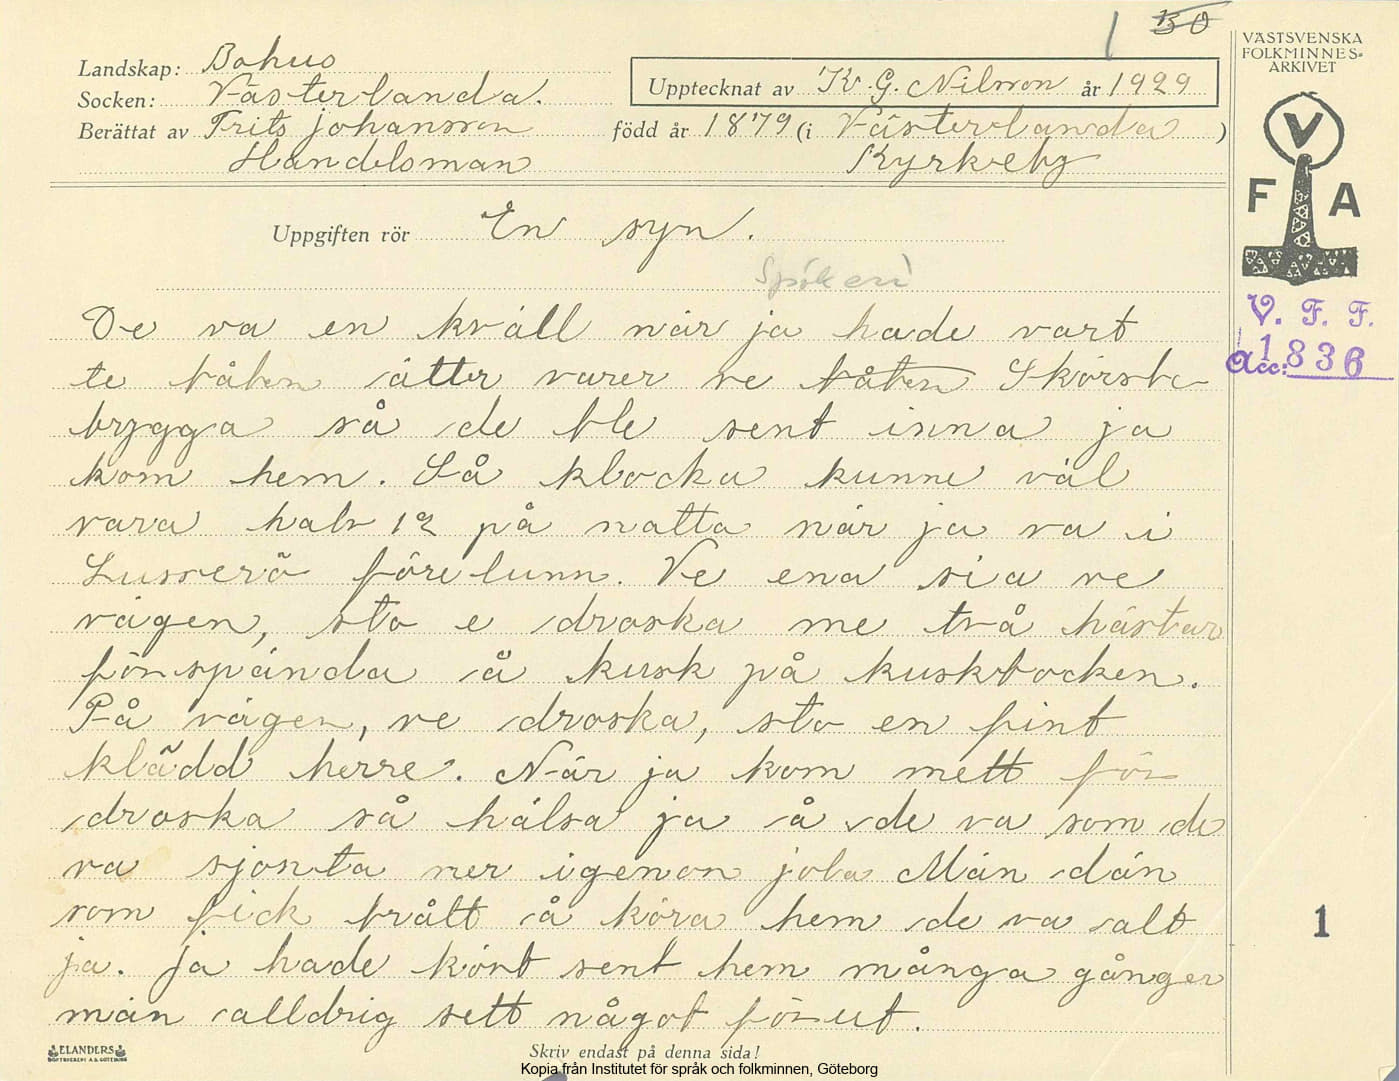 1 50
VÄSTSVENSKA
FOLKMINNES-
ARKIVET
Landskap: Bohus
Socken: Västerlanda.
Upptecknat av K. G. Nilsson år 1929
Berättat av Frits Johansson född år 1879 (i Västerlanda )
Handelsman Kyrkeby
V
F A
Uppgiften rör En syn.
Spökeri
V. F. F.
Acc: 1836
De va en kväll när ja hade vart
te båten ätter varer ve båten Skörsbo
brygga så de ble sent inna ja
kom hem. Så klocka kunne väl
vara halv 12 på natta när ja va i
före lunn. Ve ena sia ve
vägen, sto e droska me två hästar
förspända å kusk på kuskbocken.
På vägen, ve droska, sto en fint
klädd herre. När ja kom mett för
droska så hälsa ja å de va som de
va sjonka ner igenon jola Män dän
som fick brått å köra hem de va alt
ja. Ja hade kört sent hem många gånger
män alldrig sett något förut.
1
ELANDERS
BOKTRYCKERI A.B. GÖTEBORG
Skriv endast på denna sida!
Kopia från Institutet för språk och folkminnen, Göteborg